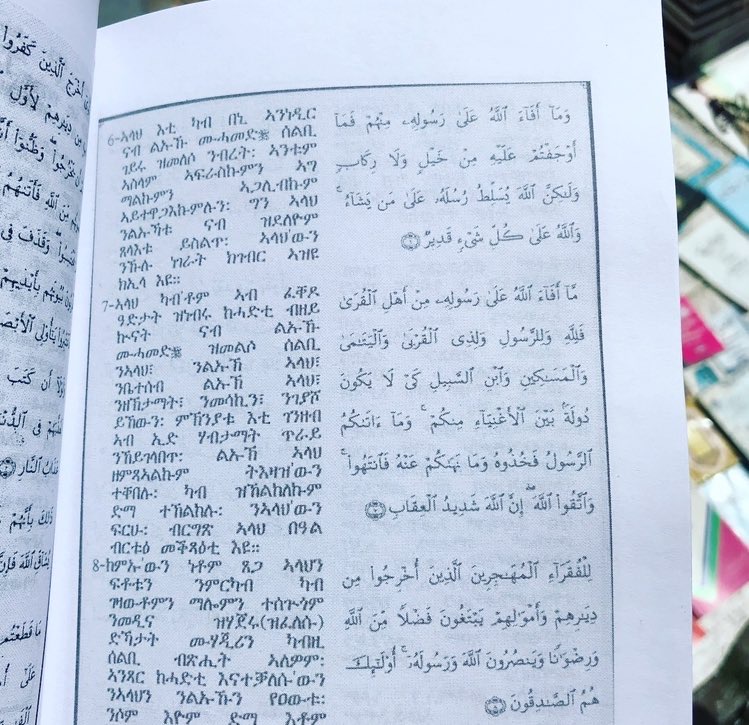 6-ኣላህ እቲ ካብ በኒ ኣንነዲር
ናብ ልኡኹ ሙሓመድﷺ ሰልቢ
ገይሩ ዝመለሶ ንብረት: ኣንቱም
ኣስላም ኣፍራስኩምን ኣግ
ማልኩምን ኣጋሊብኩም
ኣይተዋጋእኩምሉን: ግን ኣላህ
ንልኡኻቱ ናብ ዝደለዮም
ጸላእቱ ይስልጥ: ኣላህ'ውን
ንኹሉ ነገራት ክገብር ኣዝዩ
ክኢላ እዩ።
7-ኣላህ ካብ'ቶም ኣብ ፈቐዶ
ዓድታት ዝነብሩ ከሓድቲ ብዘይ
ኲናት ናብ ልኡኹ
ሙሓመድﷺ ዝመልሶ ሰልቢ
ንኣላህ፣ ንልኡኽ ኣላህ፣
ንቤተሰብ ልኡኽ ኣላህ፣
ንዘኽታማት፣ ንመሳኪን፣ ንገያሾ
ይኸውን: ምኽንያቱ እቲ ገንዘብ
ኣብ ኢድ ሃብታማት ጥራይ
ንኸይገላበጥ: ልኡኽ ኣላህ
ዘምጻኣልኩም ትእዛዝ'ውን
ተቐበሉ: ካብ ዝኸልከለኩም
ድማ ተኸልከሉ: ንኣላህ'ውን
ፍርሁ: ብርግጽ ኣላህ በዓል
ብርቱዕ መቕጻዕቲ እዩ።
8-ከምኡ'ውን ነቶም ጸጋ ኣላህን
ፍቶቱን ንምርካብ ካብ
ገዛውቶምን ማሎምን ተሰጒጎም
ንመዲና ዝሃጀሩ(ዝፈለሱ)
ድኻታት ሙሃጂሪን ካብዚ
ሰልቢ ብጽሒት ኣለዎም:
ኣንጻር ከሓድቲ እናተቓለሱ'ውን
ንኣላህን ንልኡኹን የዐውቱ:
ንሶም እዮም ድማ እቶም
وَمَآ أَفَآءَ ٱللَّهُ عَلَىٰ رَسُولِهِۦ مِنْهُمْ فَمَآ
أَوْجَفْتُمْ عَلَيْهِ مِنْ خَيْلٍ وَلَا رِكَابٍ
وَلَٰكِنَّ ٱللَّهَ يُسَلِّطُ رُسُلَهُۥ عَلَىٰ مَن يَشَآءُ ۚ
وَٱللَّهُ عَلَىٰ كُلِّ شَىْءٍ قَدِيرٌ ۝٦
مَّآ أَفَآءَ ٱللَّهُ عَلَىٰ رَسُولِهِۦ مِنْ أَهْلِ ٱلْقُرَىٰ
فَلِلَّهِ وَلِلرَّسُولِ وَلِذِى ٱلْقُرْبَىٰ وَٱلْيَتَٰمَىٰ
وَٱلْمَسَٰكِينِ وَٱبْنِ ٱلسَّبِيلِ كَىْ لَا يَكُونَ
دُولَةًۢ بَيْنَ ٱلْأَغْنِيَآءِ مِنكُمْ ۚ وَمَآ ءَاتَىٰكُمُ
ٱلرَّسُولُ فَخُذُوهُ وَمَا نَهَىٰكُمْ عَنْهُ فَٱنتَهُوا۟ ۚ
وَٱتَّقُوا۟ ٱللَّهَ ۖ إِنَّ ٱللَّهَ شَدِيدُ ٱلْعِقَابِ ۝٧
لِلْفُقَرَآءِ ٱلْمُهَٰجِرِينَ ٱلَّذِينَ أُخْرِجُوا۟ مِن
دِيَٰرِهِمْ وَأَمْوَٰلِهِمْ يَبْتَغُونَ فَضْلًا مِّنَ ٱللَّهِ
وَرِضْوَٰنًا وَيَنصُرُونَ ٱللَّهَ وَرَسُولَهُۥٓ ۚ أُو۟لَٰٓئِكَ
هُمُ ٱلصَّٰدِقُونَ ۝٨